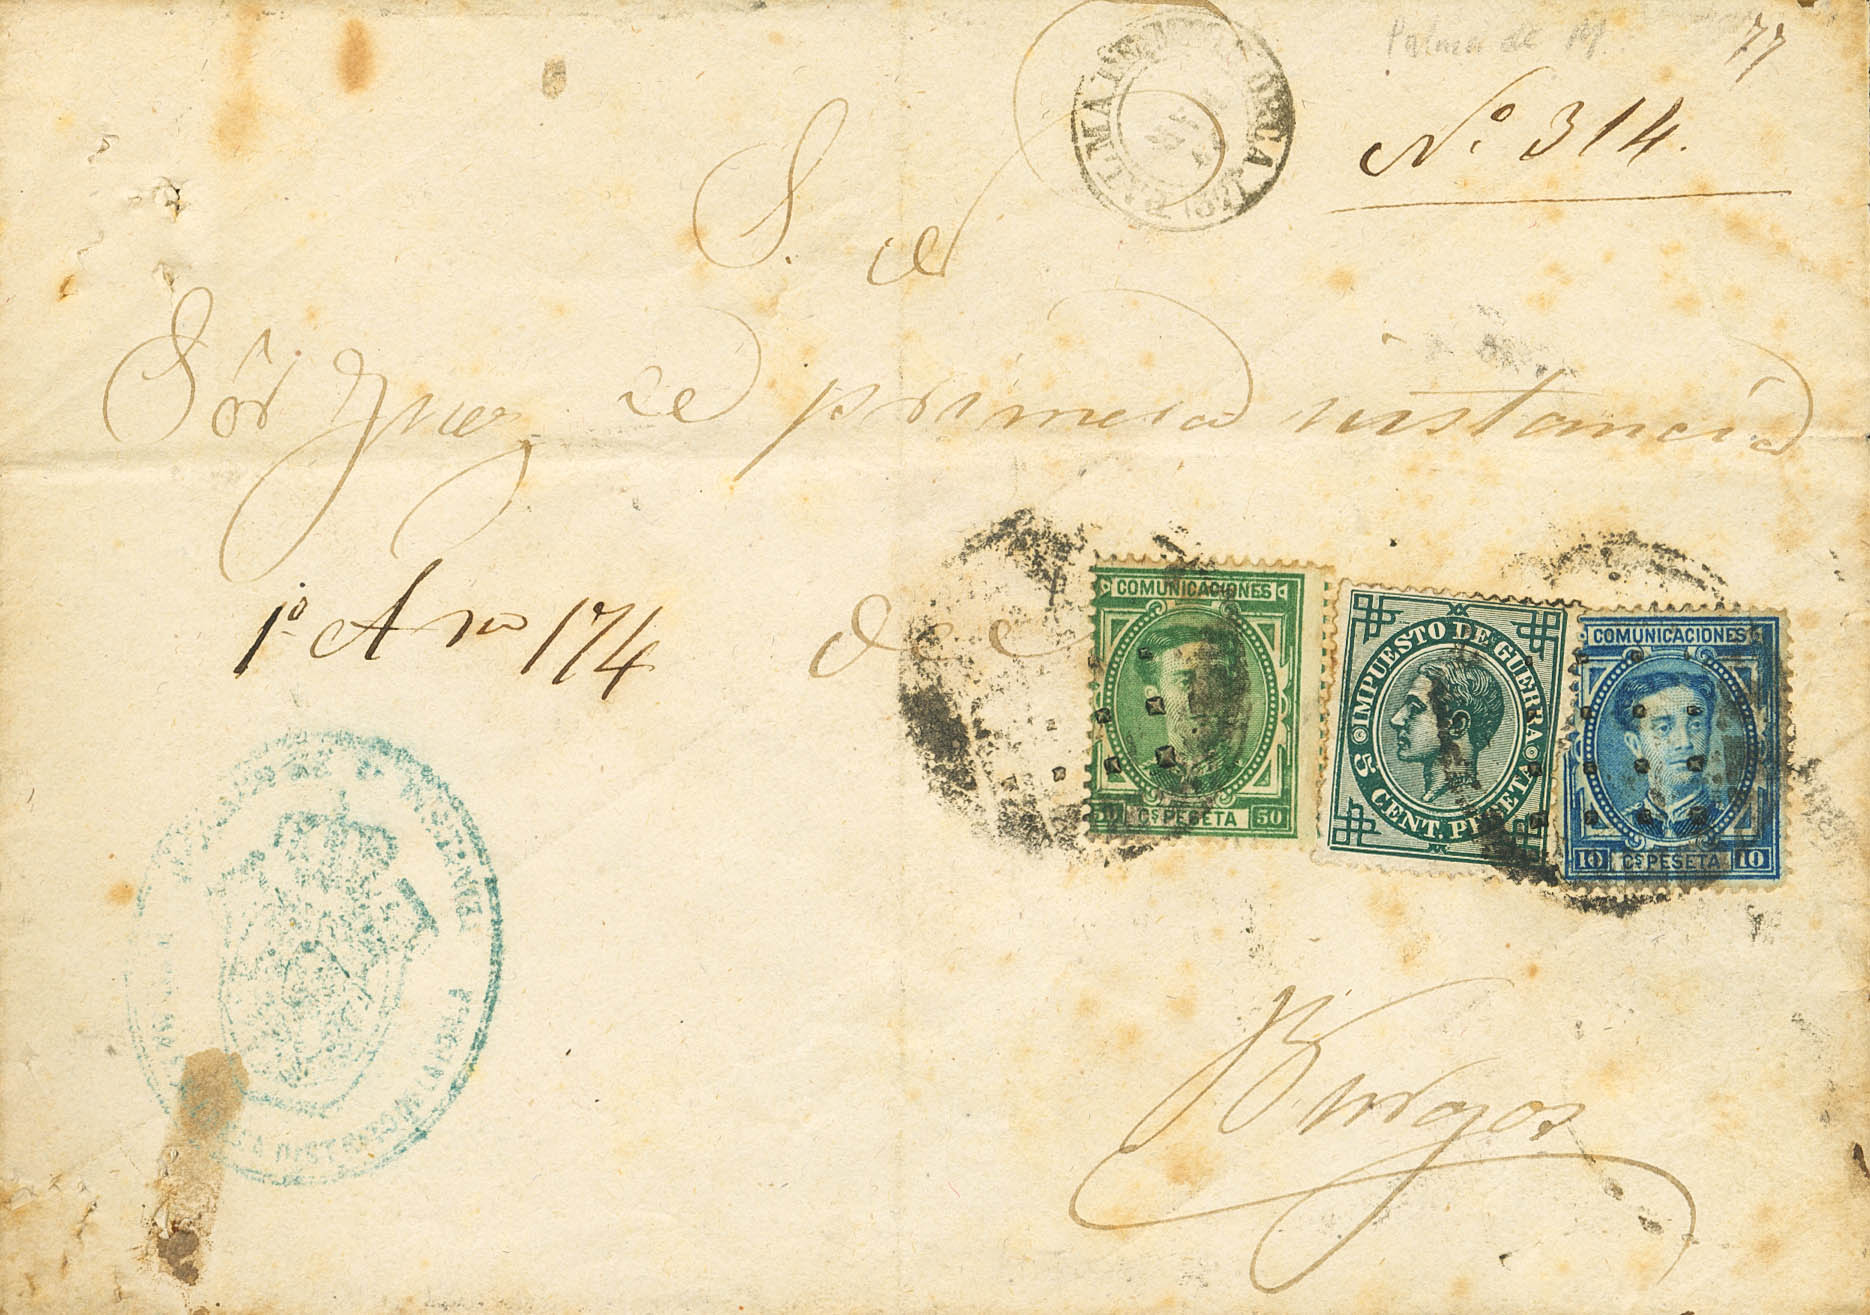 Palma de M.
77
PALMA DE MALLORCA
Nº 314.
S. d
Sôr Juez de primera instancia
1º A 174
de
COMUNICACIONES
50 Cs PESETA 50
IMPUESTO DE GUERRA
5 CENT. PESETA
COMUNICACIONES
10 Cs PESETA 10
DISTRITO DE LA
Burgos